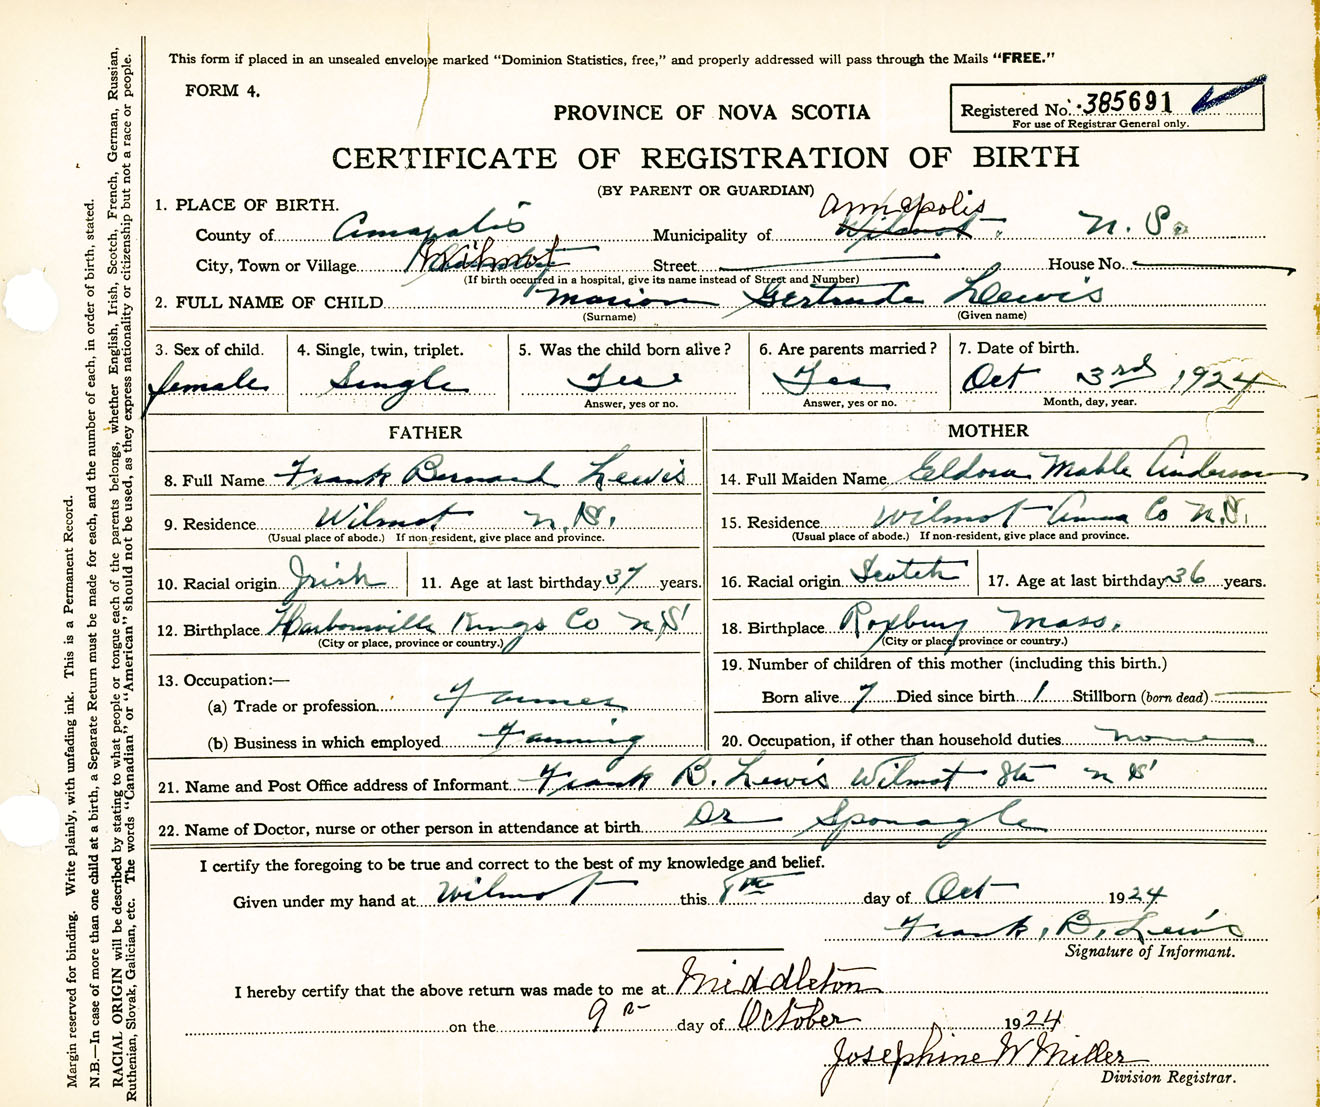 This form if placed in an unsealed envelope marked "Dominion Statistics, free," and properly addressed will pass through the Mails "FREE."
FORM 4.
PROVINCE OF NOVA SCOTIA
Registered No. 385691
For use of Registrar General only.
CERTIFICATE OF REGISTRATION OF BIRTH
(BY PARENT OR GUARDIAN)
1. PLACE OF BIRTH.
Annapolis
County of Annapolis Municipality of Wilmot N. S.
City, Town or Village Wilmot Street House No.
(If birth occurred in a hospital, give its name instead of Street and Number)
2. FULL NAME OF CHILD Marion Gertrude Lewis
(Surname) (Given name)
3. Sex of child. 4. Single, twin, triplet. 5. Was the child born alive? 6. Are parents married? 7. Date of birth.
female Single Yes Yes Oct 3rd 1924
Answer, yes or no. Answer, yes or no. Month, day, year.
FATHER MOTHER
8. Full Name Frank Bernard Lewis 14. Full Maiden Name Eldora Mable Anderson
9. Residence Wilmot N.S. 15. Residence Wilmot Anna Co N.S.
(Usual place of abode.) If non-resident, give place and province. (Usual place of abode.) If non-resident, give place and province.
10. Racial origin Irish 11. Age at last birthday 37 years. 16. Racial origin Scotch 17. Age at last birthday 36 years.
12. Birthplace Harbourville Kings Co N S 18. Birthplace Roxbury Mass.
(City or place, province or country.) (City or place, province or country.)
19. Number of children of this mother (including this birth.)
13. Occupation:—
(a) Trade or profession Farmer Born alive 7 Died since birth 1 Stillborn (born dead)
(b) Business in which employed Farming 20. Occupation, if other than household duties none
21. Name and Post Office address of Informant Frank B. Lewis Wilmot Sta N S
22. Name of Doctor, nurse or other person in attendance at birth Dr Sponagle
I certify the foregoing to be true and correct to the best of my knowledge and belief.
Given under my hand at Wilmot this 8th day of Oct 1924
Frank. B. Lewis
Signature of Informant.
I hereby certify that the above return was made to me at Middleton
on the 9 day of October 1924
Josephine W Miller
Division Registrar.
Margin reserved for binding. Write plainly, with unfading ink. This is a Permanent Record.
N.B.—In case of more than one child at a birth, a Separate Return must be made for each, and the number of each, in order of birth, stated.
RACIAL ORIGIN will be described by stating to what people or tongue each of the parents belongs, whether English, Irish, Scotch, French, German, Russian,
Ruthenian, Slovak, Galician, etc. The words "Canadian" or "American" should not be used, as they express nationality or citizenship but not a race or people.